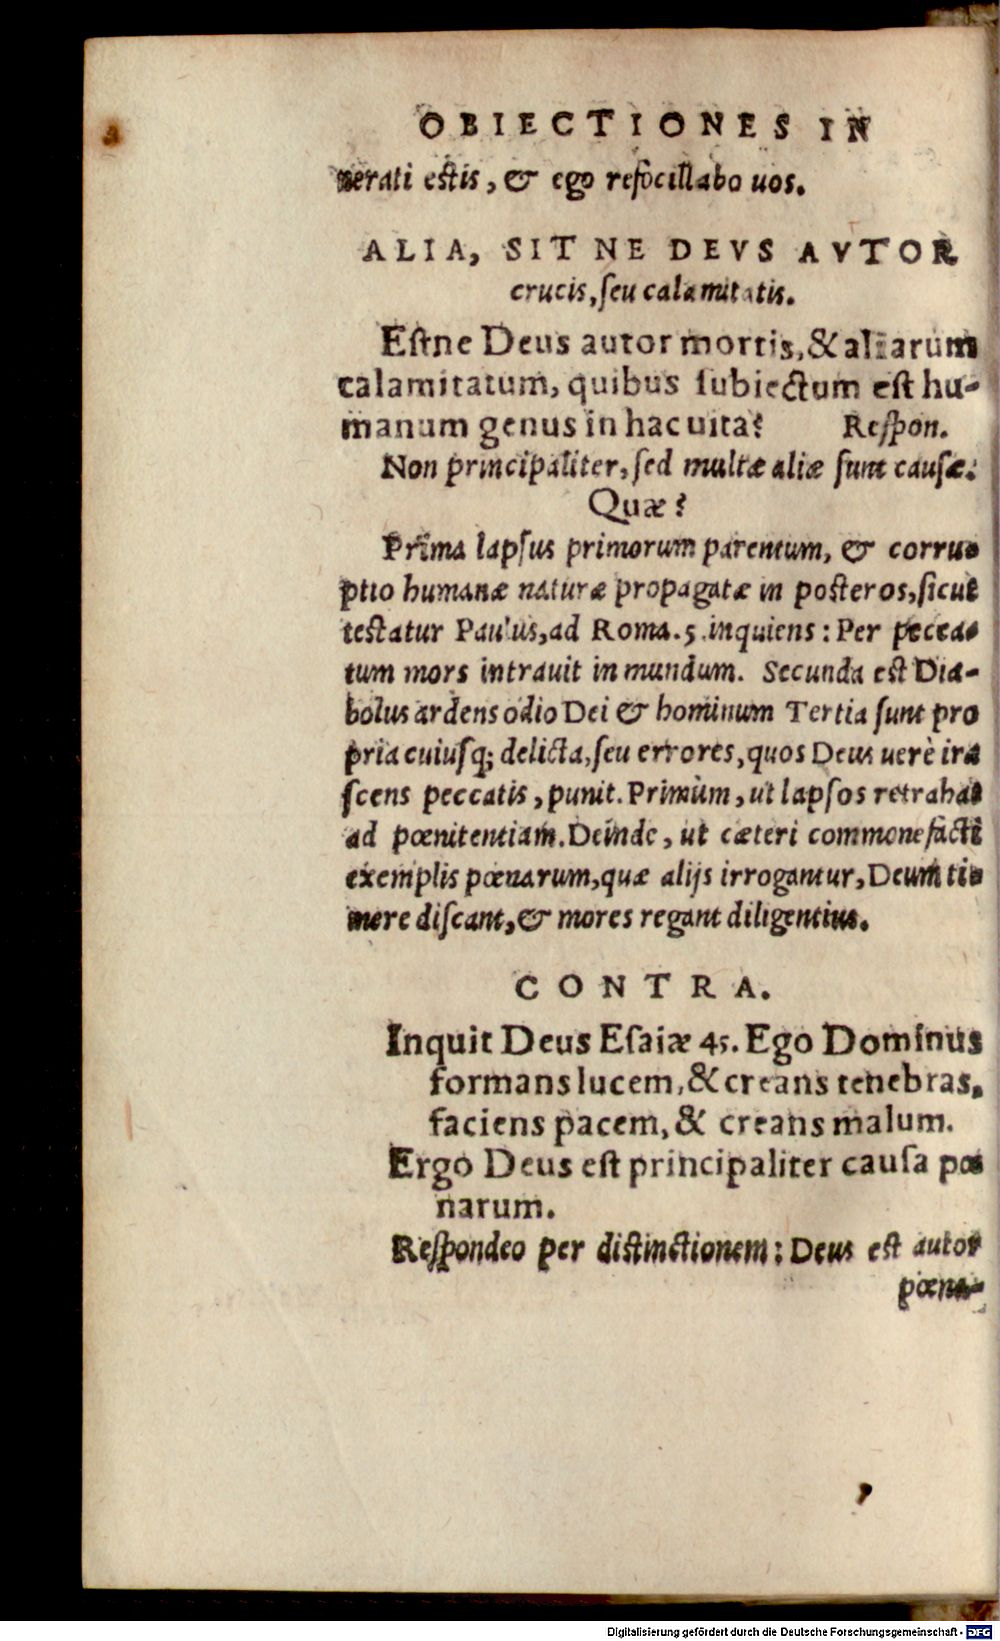 OBIECTIONES IN
nerati estis, & ego refocillabo uos.
ALIA, SIT NE DEVS AVTOR
crucis, ſeu calamitatis.
Eſtne Deus autor mortis, & aliarum
calamitatum, quibus ſubiectum eſt hu-
manum genus in hac uita? Reſpon.
Non principaliter, ſed multæ aliæ ſunt cauſæ.
Quæ?
Prima lapſus primorum parentum, & corru-
ptio humanæ naturæ propagatæ in posteros, ſicut
testatur Paulus, ad Roma. 5. inquiens: Per pecca-
tum mors intrauit in mundum. Secunda est Dia-
bolus ardens odio Dei & hominum Tertia ſunt pro
pria cuiuſq; delicta, ſeu errores, quos Deus uerè ira
ſcens peccatis, punit. Primùm, ut lapſos retrahat
ad pœnitentiam. Deinde, ut cæteri commonefacti
exemplis pœnarum, quæ alijs irrogantur, Deum ti-
mere diſcant, & mores regant diligentius.
CONTRA.
Inquit Deus Eſaiæ 45. Ego Dominus
formans lucem, & creans tenebras,
faciens pacem, & creans malum.
Ergo Deus eſt principaliter cauſa pœ
narum.
Reſpondeo per distinctionem: Deus est autor
pœna-
Digitalisierung gefördert durch die Deutsche Forschungsgemeinschaft - DFG